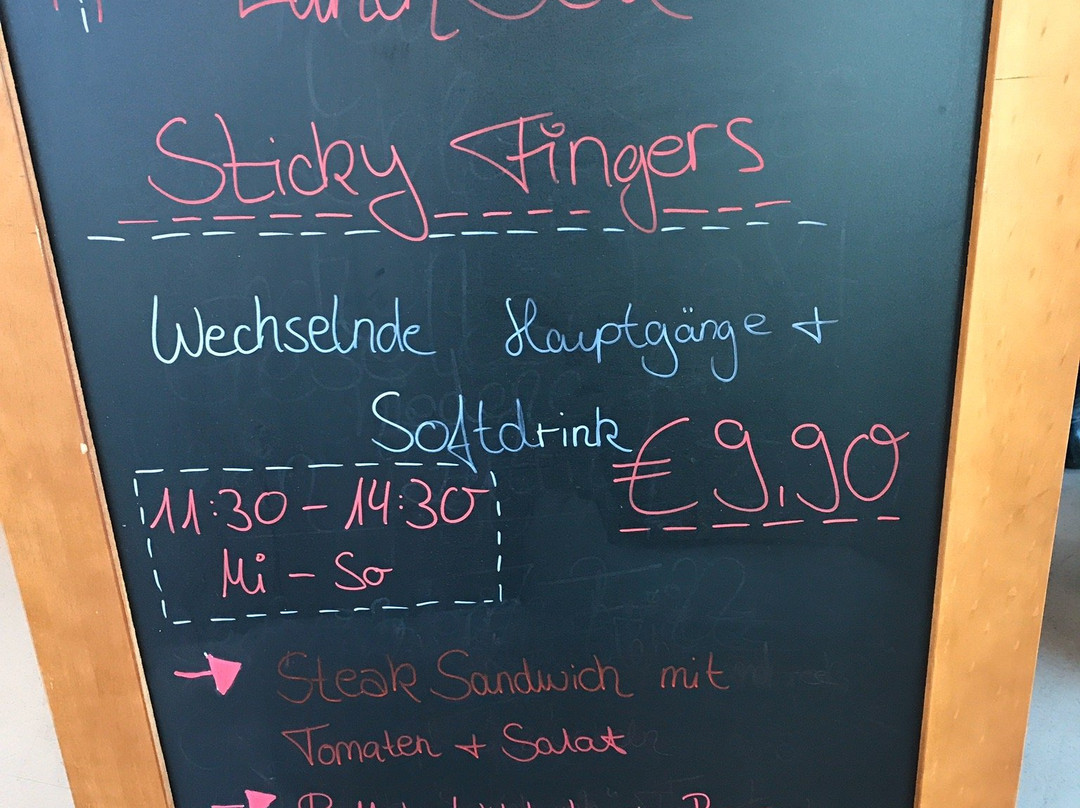 Lunch
Sticky Fingers
Wechselnde Hauptgänge +
Softdrink
€ 9,90
11:30 - 14:30
Mi - So
Steak Sandwich mit
Tomaten + Salat